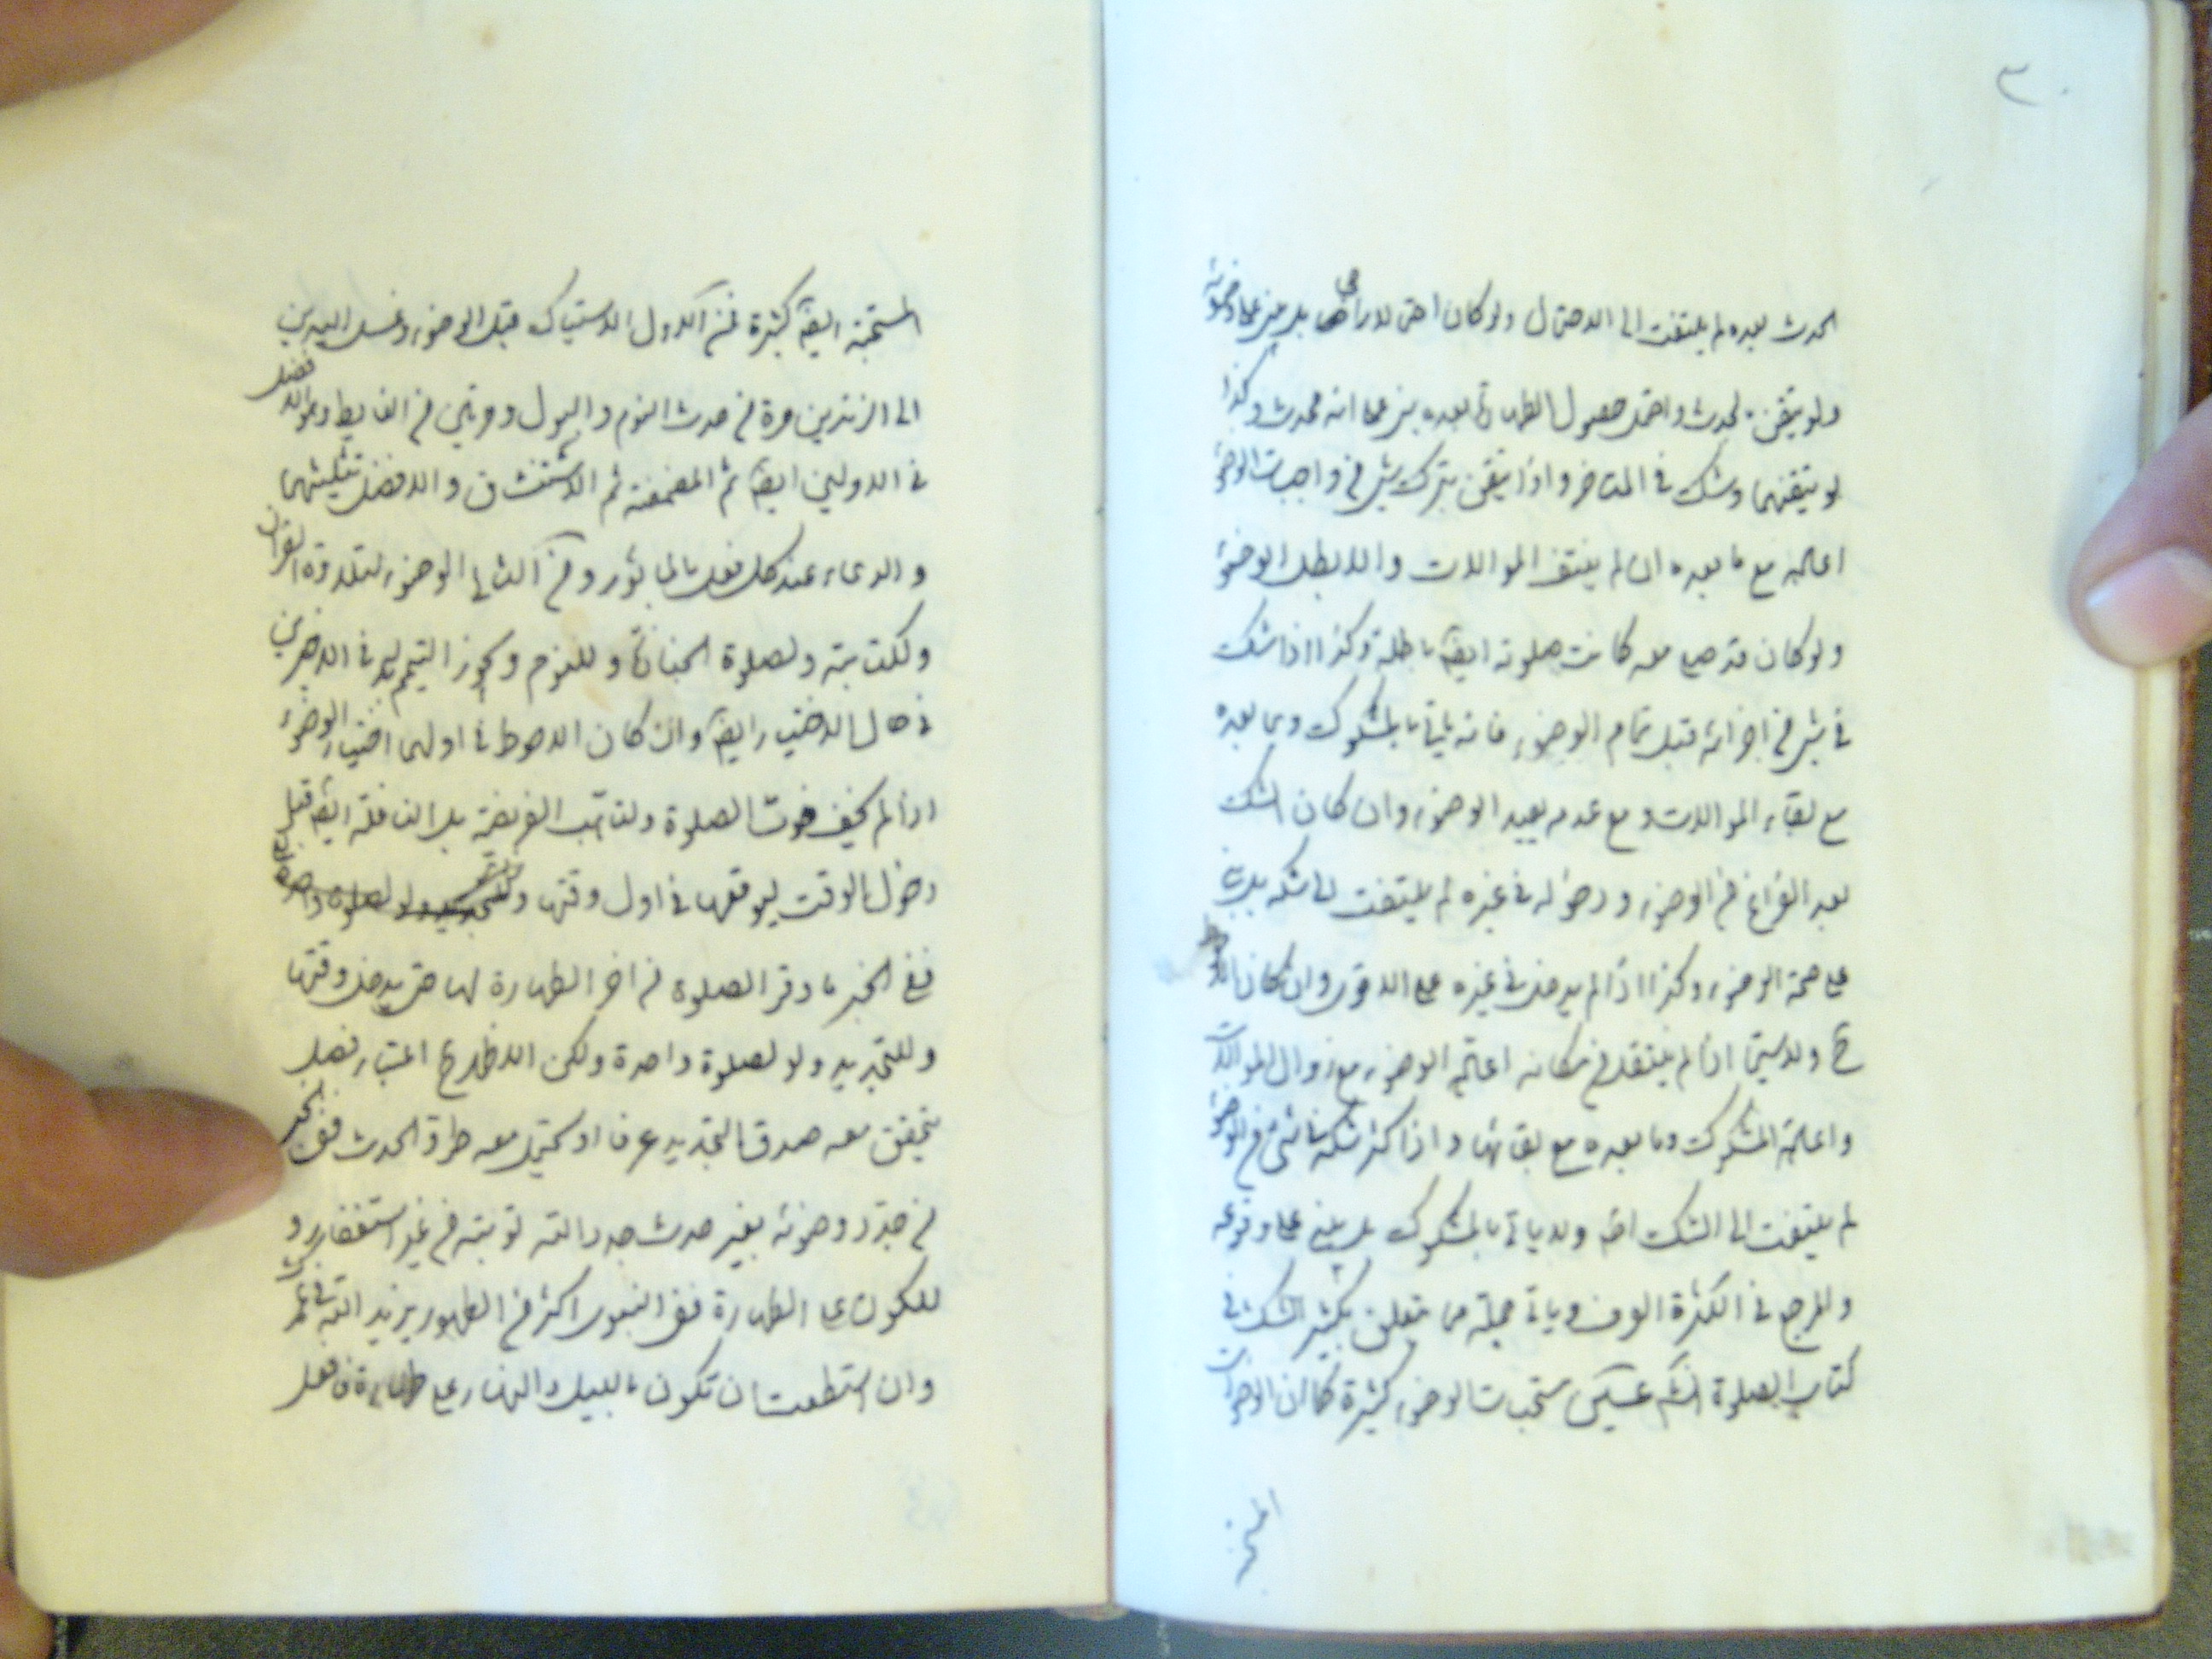 ٣٠
الحدث بعده لم يلتفت الى الاحتمال ولو كان احتمالا راجحا بل بنى على وضوئه
ولو تيقن الحدث واحتمل حصول الطهارة بعده بنى على انه محدث وكذا
لو تيقنهما وشك في المتاخر واذا تيقن بترك شئ من واجبات الوضوء
اعاده مع ما بعده ان لم ينتف الموالات والا بطل الوضوء
ولو كان قد صلى معه كانت صلوته ايضا باطلة وكذا اذا شك
في شئ من اجزائه قبل تمام الوضوء فانه ياتى بالمشكوك وما بعده
مع بقاء الموالات ومع عدمه يعيد الوضوء وان كان الشك
بعد الفراغ من الوضوء ودخوله في غيره لم يلتفت الى شكه بل بنى
على صحة الوضوء وكذا اذا لم يدخل في غيره على الاقوى وان كان الاحوط
ح ولا سيما اذا لم ينتقل من مكانه اعادة الوضوء مع زوال الموالات
واعادة المشكوك وما بعده مع بقائها واذا كثر شكه في شئ من الوضوء
لم يلتفت الى الشك اصلا ولا ياتى بالمشكوك بل يبنى على وقوعه
والمرجع في الكثرة العرف وياتى جملة مما يتعلق بكثير الشك في
كتاب الصلوة انشاء مستحبات الوضوء كثيرة كما ان الوضوءات
المستحبة
المستحبة ايضا كثيرة فمن الاول الاستياك قبل الوضوء وغسل اليدين
الى الزندين مرة من حدث النوم والبول ومرتين من الغايط وهو الافضل
في الاولين ايضا ثم المضمضة ثم الاستنشاق والافضل تثليثهما
والدعاء عند كل فعل بالماثور ومن الثانى الوضوء لتلاوة القران
ولكتابته ولصلوة الجنازة وللنوم ويجوز التيمم في الاخيرين
في حال الاختيار ايضا وان كان الاحوط في اولهما اختيار الوضوء
اذا لم يخف فوت الصلوة ولتاهب الفريضة بل النافلة ايضا قبل
دخول الوقت ليوقعها في اول وقتها
ففي الخبر ما وقر الصلوة من اخر الطهارة لها حتى يدخل وقتها
وللتجديد ولو لصلوة واحدة ولكن الاظهر ح اعتبار فصل
يتحقق معه صدق التجديد عرفا او يحتمل معه طرو الحدث ففى الخبر
من جدد وضوئه بغير حدث جدد الله توبته من غير استغفار و
للكون على الطهارة ففى النبوى اكثر من الطهور يزيد الله في عمرك
وان استطعت ان تكون بالليل والنهار على طهارة فافعل